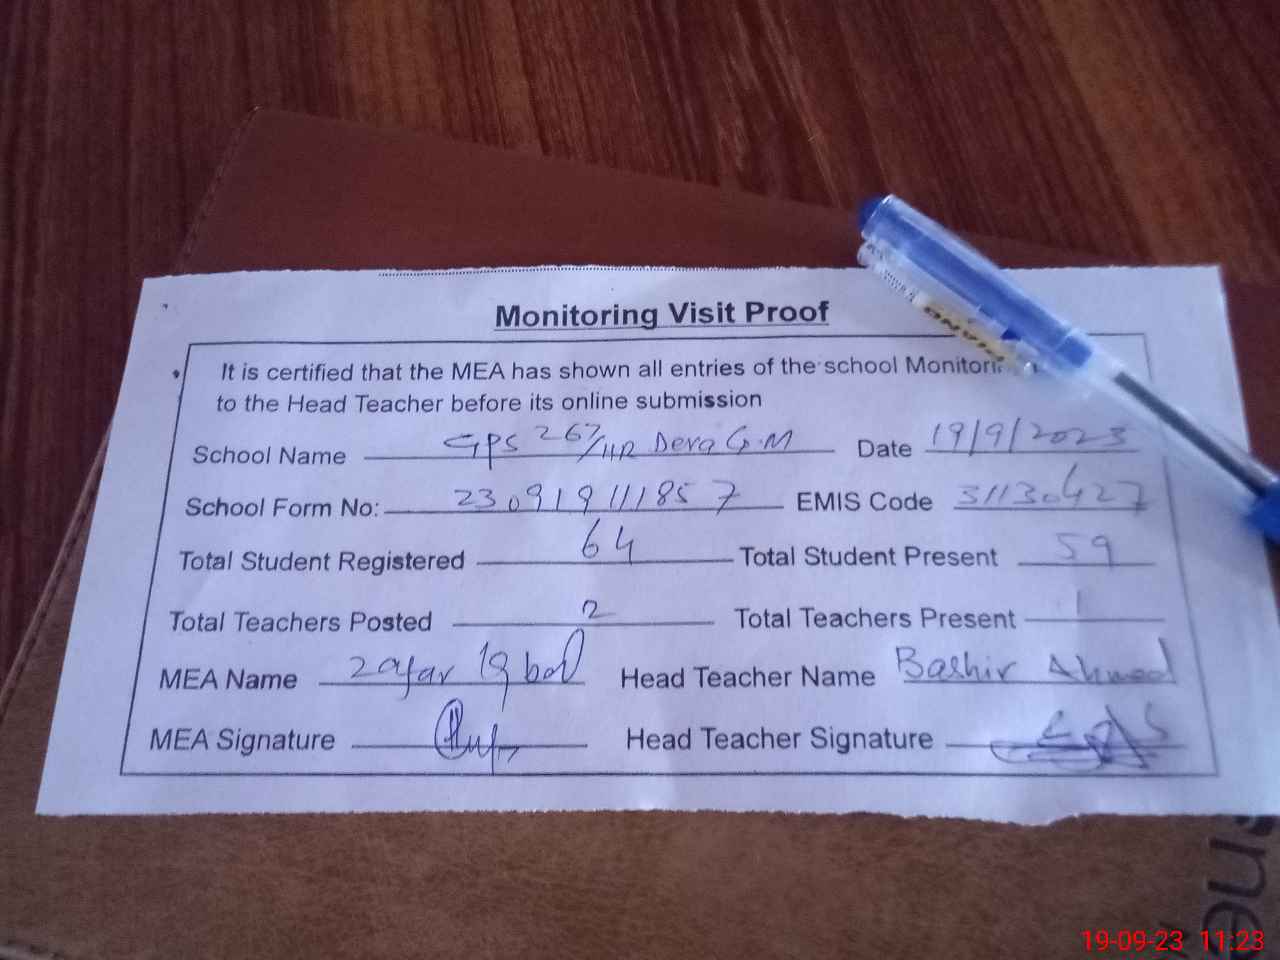 Monitoring Visit Proof
It is certified that the MEA has shown all entries of the school
to the Head Teacher before its online submission
School Name GPS 267/HR Dera G.M Date 19/9/2023
School Form No: 230919111857 EMIS Code 31130427
Total Student Registered 64 Total Student Present 59
Total Teachers Posted 2 Total Teachers Present 1
MEA Name Zafar Iqbal Head Teacher Name Bashir Ahmad
MEA Signature Head Teacher Signature
PIANO
19-09-23 11:23